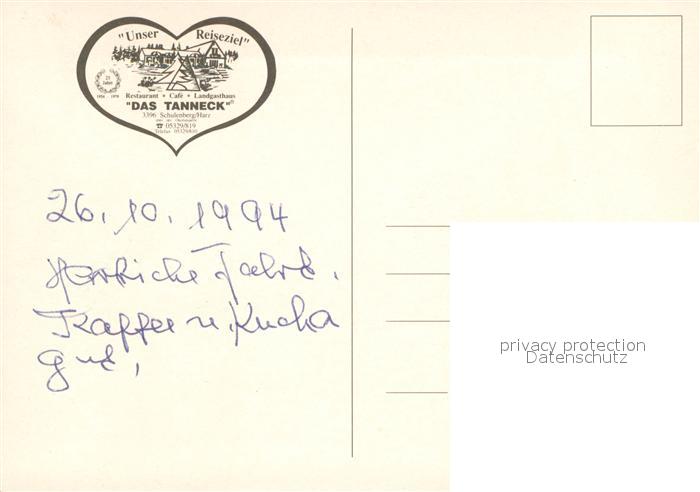 "Unser Reiseziel"
25 Jahre
Restaurant • Café • Landgasthaus
"DAS TANNECK"®
3396 Schulenberg/Harz
☎ 05329/819
Telefax 05329/810
26. 10. 1994
Herrliche Fahrt.
Kaffee u. Kuchen
gut,
privacy protection
Datenschutz